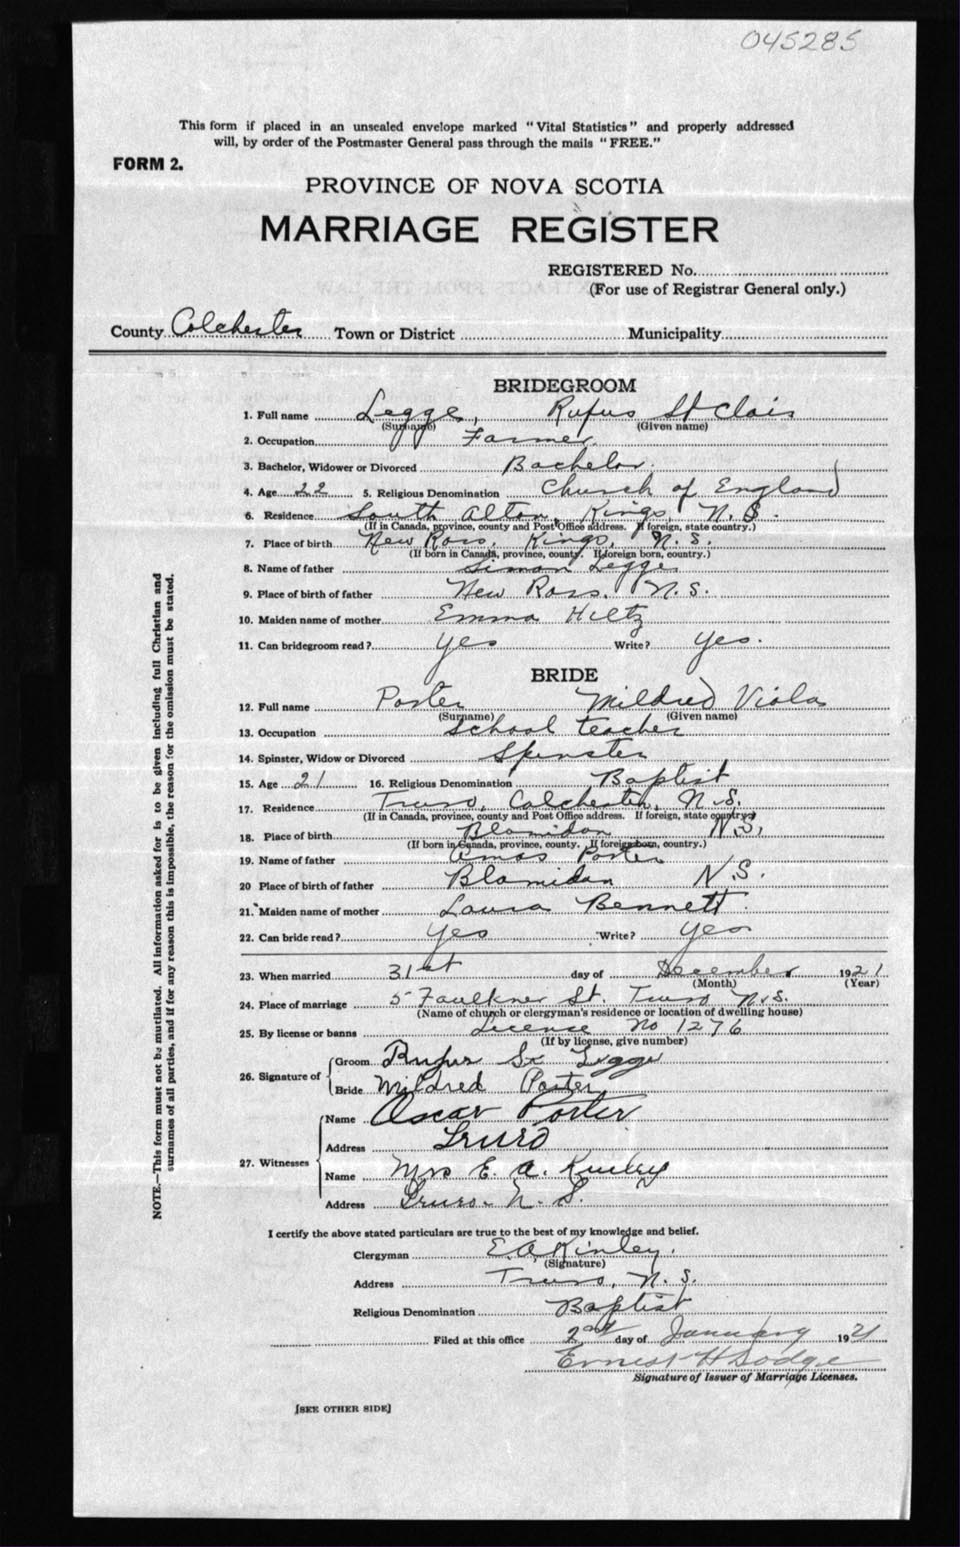 045285
This form if placed in an unsealed envelope marked "Vital Statistics" and properly addressed
will, by order of the Postmaster General pass through the mails "FREE."
FORM 2.
PROVINCE OF NOVA SCOTIA
MARRIAGE REGISTER
REGISTERED No.
(For use of Registrar General only.)
County Colchester Town or District Municipality
BRIDEGROOM
1. Full name Legge, Rufus St Clair
(Surname) (Given name)
2. Occupation Farmer
3. Bachelor, Widower or Divorced Bachelor.
4. Age 22 5. Religious Denomination Church of England
6. Residence South Alton, Kings, N.S.
(If in Canada, province, county and Post Office address. If foreign, state country.)
7. Place of birth New Ross, Kings, N.S.
(If born in Canada, province, county. If foreign born, country.)
8. Name of father Simon Legge
9. Place of birth of father New Ross, N.S.
10. Maiden name of mother Emma Hiltz
11. Can bridegroom read? Yes Write? Yes.
BRIDE
12. Full name Porter Mildred Viola
(Surname) (Given name)
13. Occupation School teacher
14. Spinster, Widow or Divorced Spinster
15. Age 21 16. Religious Denomination Baptist
17. Residence Truro, Colchester, N.S.
(If in Canada, province, county and Post Office address. If foreign, state country)
18. Place of birth Blomidon N.S.
(If born in Canada, province, county. If foreign born, country.)
19. Name of father Amos Porter
20 Place of birth of father Blomidon N.S.
21. Maiden name of mother Laura Bennett.
22. Can bride read? Yes Write? Yes
23. When married 31st day of December 1921
(Month) (Year)
24. Place of marriage 5 Faulkner St. Truro N.S.
(Name of church or clergyman's residence or location of dwelling house)
25. By license or banns License No 1276
(If by license, give number)
26. Signature of Groom Rufus St Legge
Bride Mildred Porter
27. Witnesses Name Oscar Porter
Address Truro
Name Mrs E. A. Kinley
Address Truro. N. S.
I certify the above stated particulars are true to the best of my knowledge and belief.
Clergyman E. A. Kinley.
(Signature)
Address Truro, N. S.
Religious Denomination Baptist
Filed at this office 2nd day of January 1921
Ernest H Dodge
Signature of Issuer of Marriage Licenses.
[SEE OTHER SIDE]
NOTE.—This form must not be mutilated. All information asked for is to be given including full Christian and
surnames of all parties, and if for any reason this is impossible, the reason for the omission must be stated.